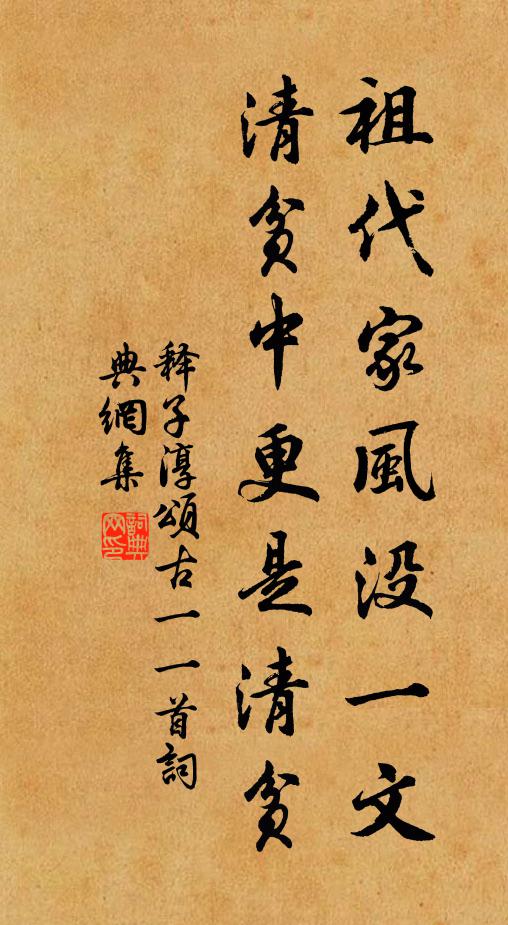 祖代家風没一文
清贫中更是清贫
释子淳頌古一一首詞
典網集
詞典
网印